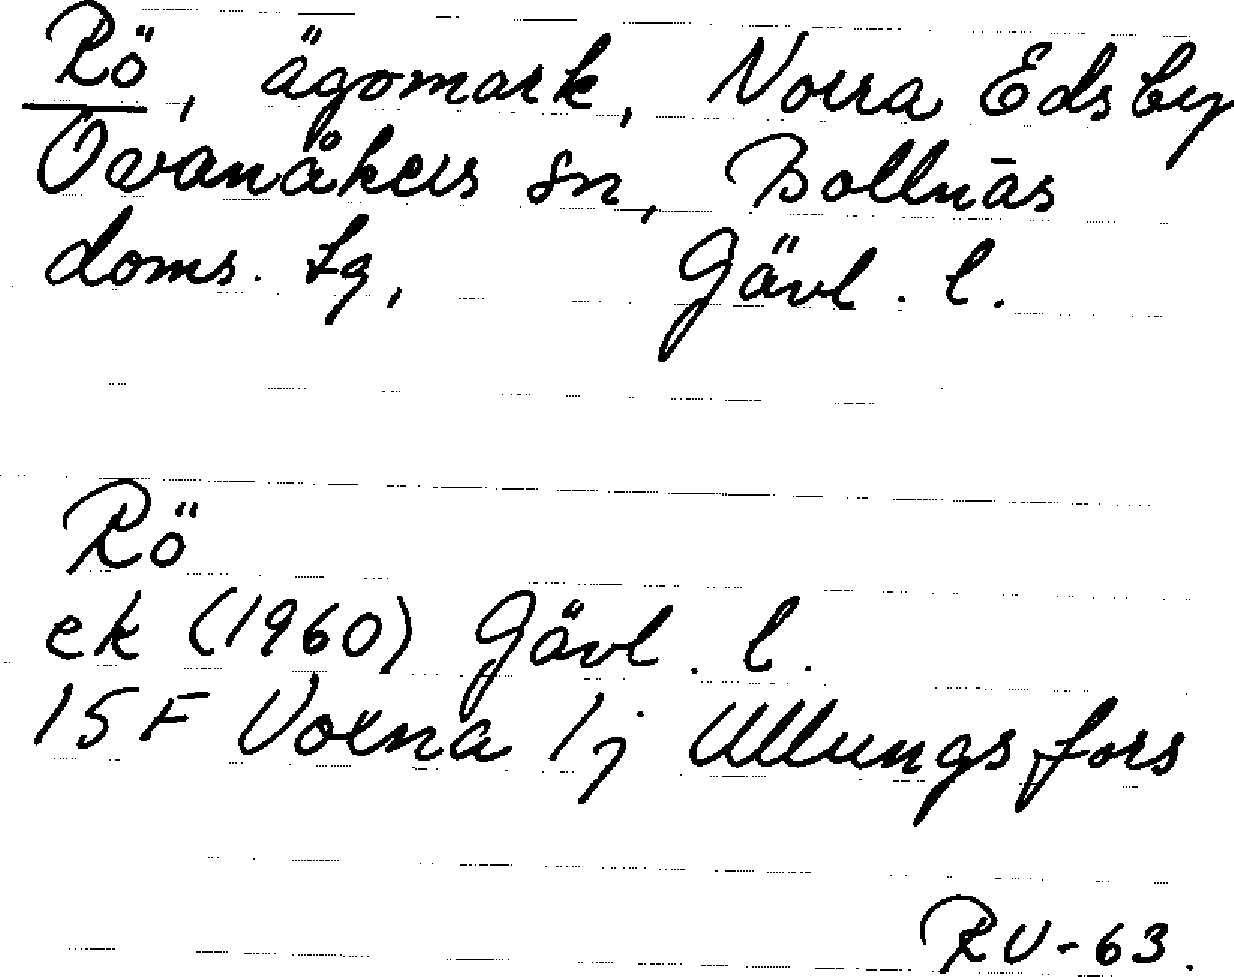 Rö, ägomark, Norra Edsby
Ovanåkers sn, Bollnäs
doms. tg, Gävl. l.
Rö
ek (1960) Gävl. l.
15 F Voxna 1j Ullungsfors
RV-63.